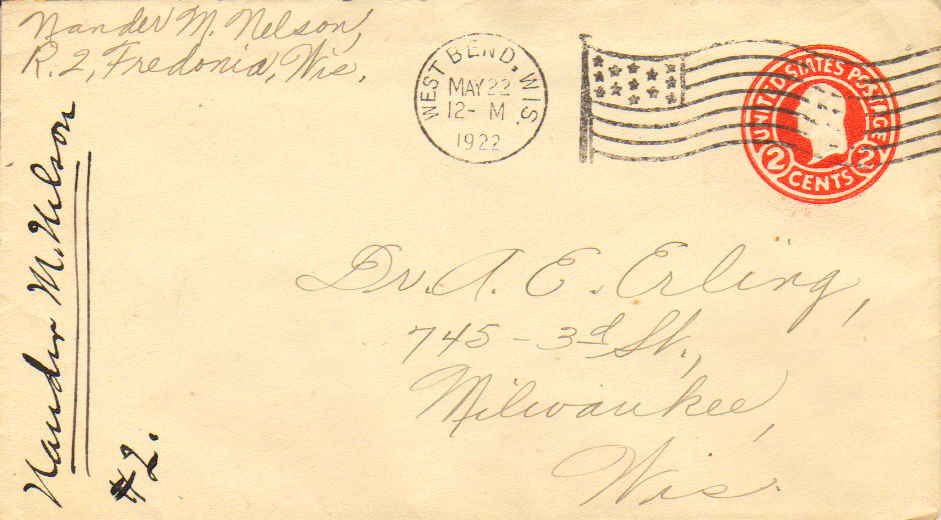 Nander M. Nelson,
R. 2, Fredonia, Wis.
WEST BEND, WIS.
MAY 22
12- M
1922
UNITED STATES POSTAGE
2 CENTS 2
Dr. A. E. Erling,
745 - 3d St.,
Milwaukee,
Wis.
Nander M. Nelson
#2.